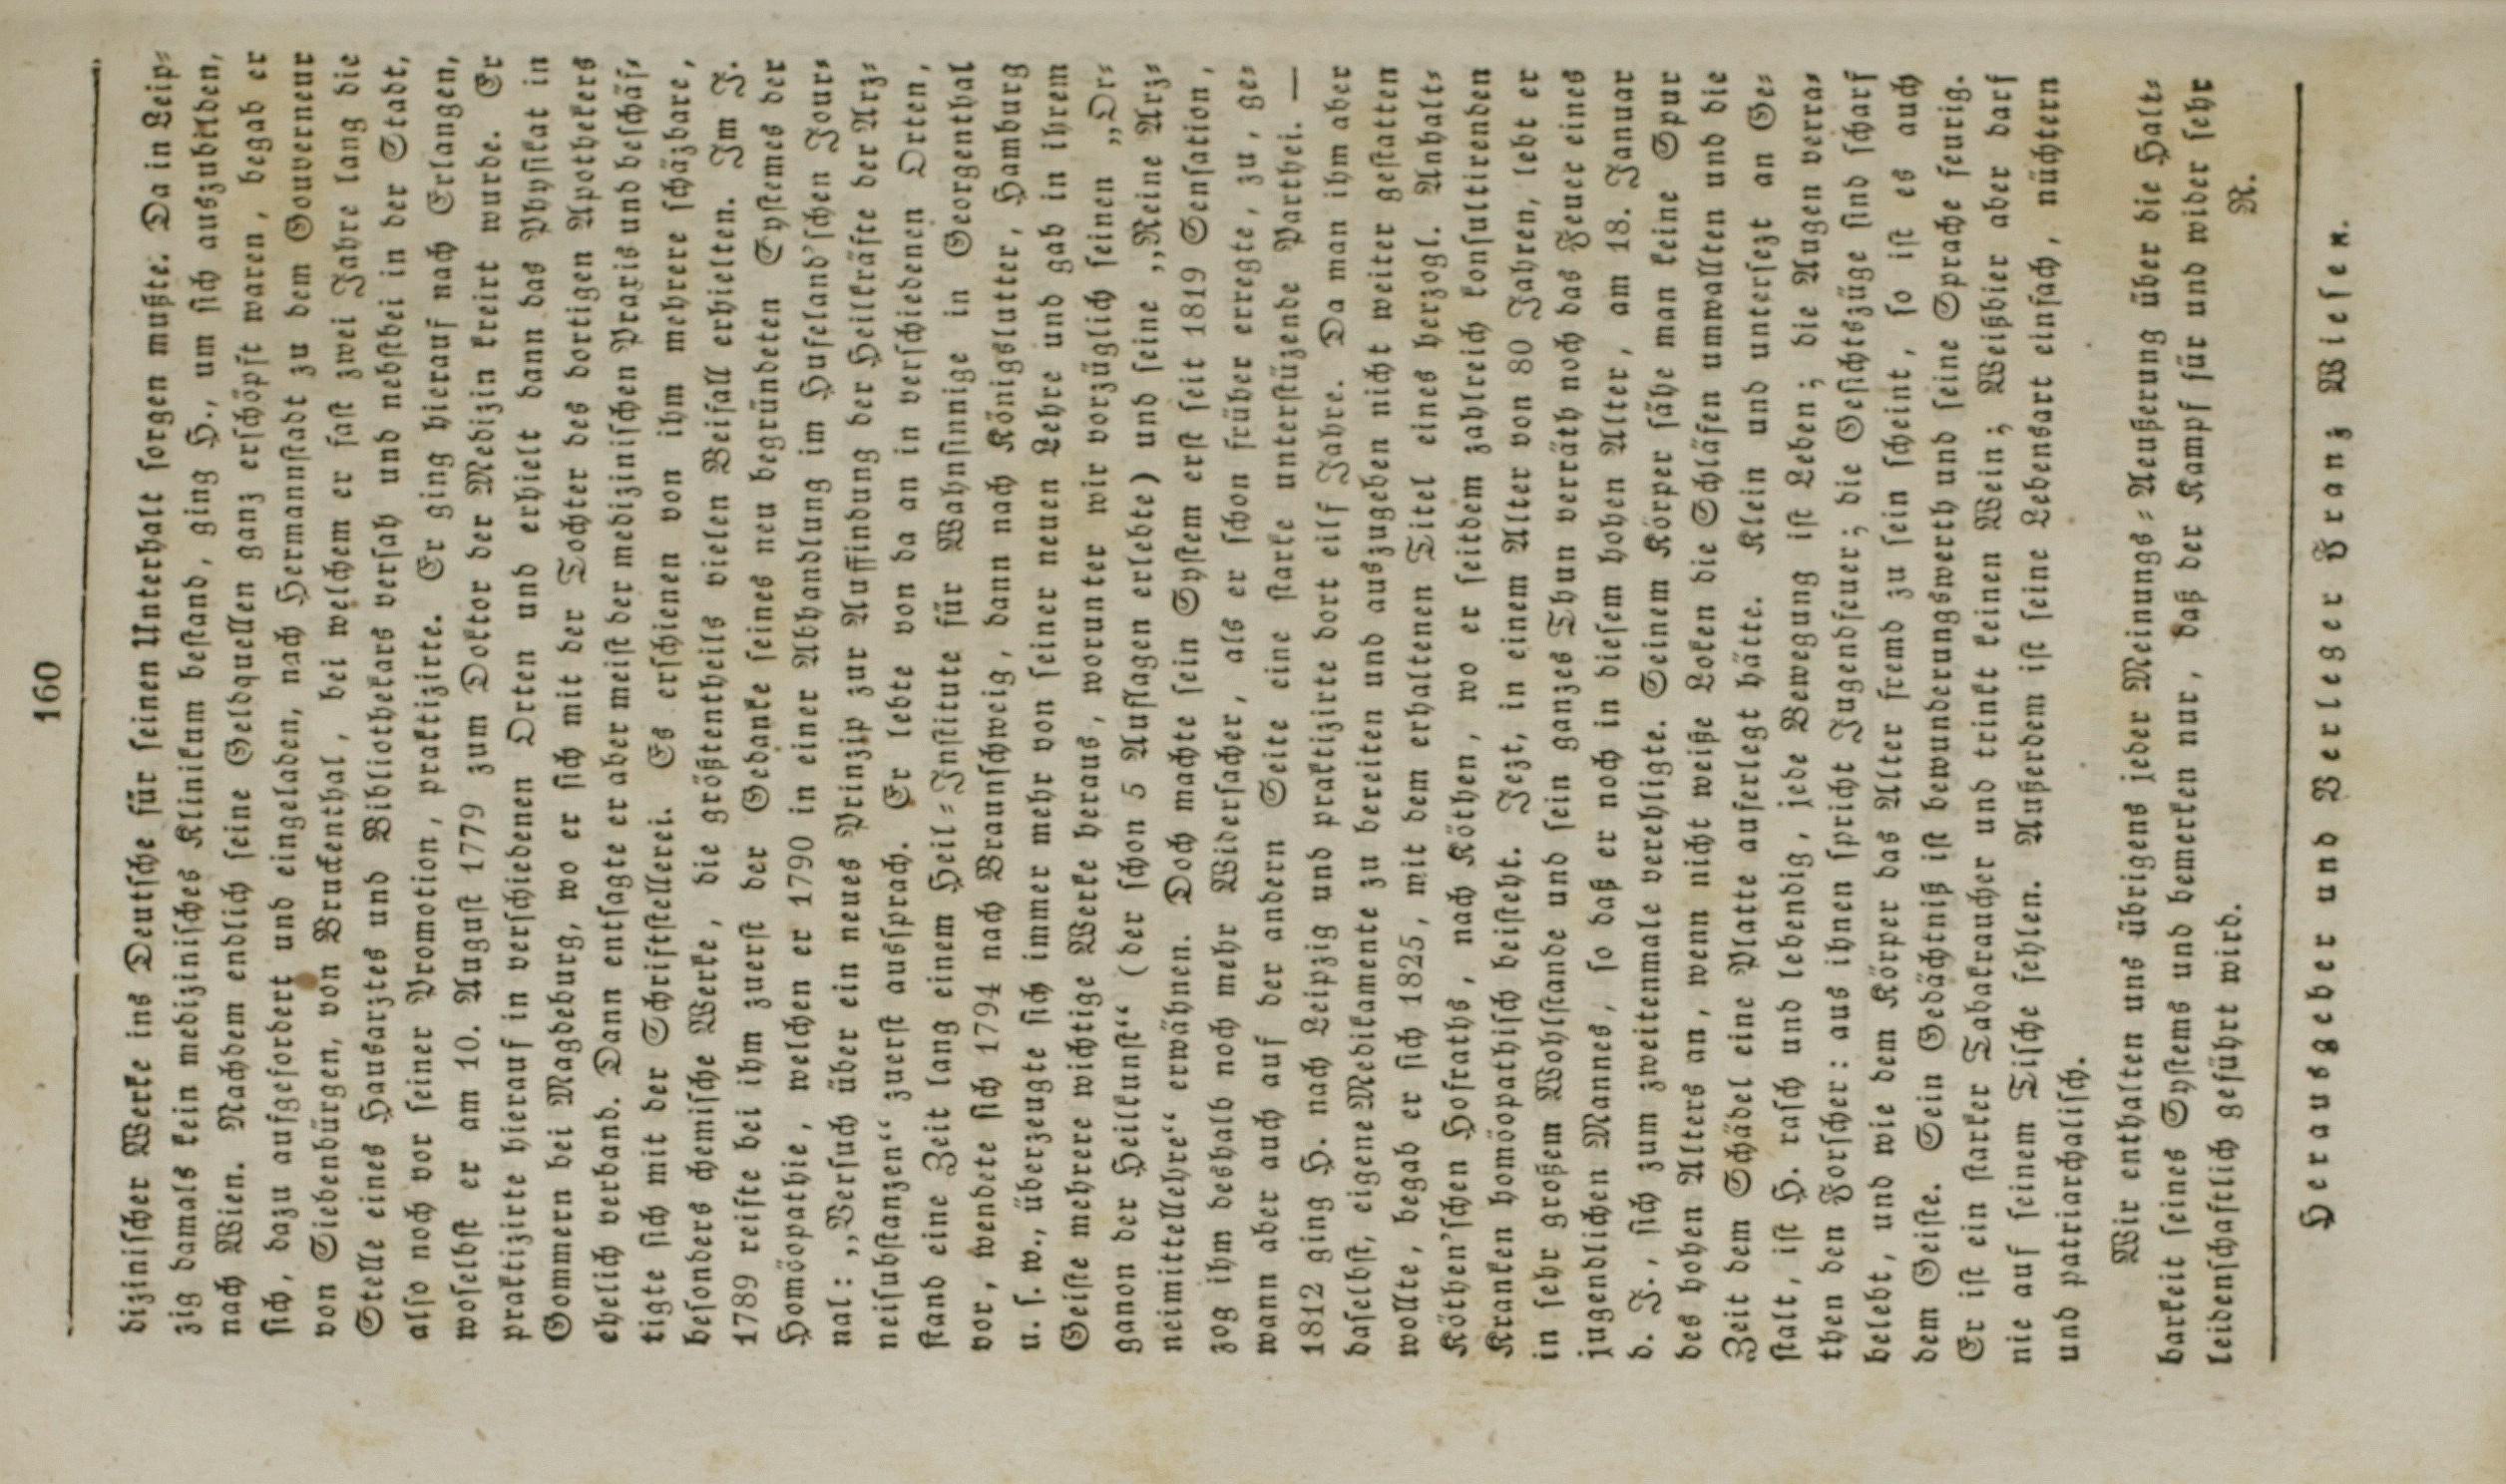 160
dizinischer Werke ins Deutsche für seinen Unterhalt sorgen mußte. Da in Leip-
zig damals kein medizinisches Klinikum bestand, ging H., um sich auszubilden,
nach Wien. Nachdem endlich seine Geldquellen ganz erschöpft waren, begab er
sich, dazu aufgefordert und eingeladen, nach Hermannstadt zu dem Gouverneur
von Siebenbürgen, von Bruckenthal, bei welchem er fast zwei Jahre lang die
Stelle eines Hausarztes und Bibliothekars versah und nebstbei in der Stadt,
also noch vor seiner Promotion, praktizirte. Er ging hierauf nach Erlangen,
woselbst er am 10. August 1779 zum Doktor der Medizin kreirt wurde. Er
praktizirte hierauf in verschiedenen Orten und erhielt dann das Physikat in
Gommern bei Magdeburg, wo er sich mit der Tochter des dortigen Apothekers
ehelich verband. Dann entsagte er aber meist der medizinischen Praxis und beschäf-
tigte sich mit der Schriftstellerei. Es erschienen von ihm mehrere schäzbare,
besonders chemische Werke, die größtentheils vielen Beifall erhielten. Im J.
1789 reiste bei ihm zuerst der Gedanke seines neu begründeten Systemes der
Homöopathie, welchen er 1790 in einer Abhandlung im Hufeland'schen Jour-
nal: „Versuch über ein neues Prinzip zur Auffindung der Heilkräfte der Arz-
neisubstanzen“ zuerst aussprach. Er lebte von da an in verschiedenen Orten,
stand eine Zeit lang einem Heil-Institute für Wahnsinnige in Georgenthal
vor, wendete sich 1794 nach Braunschweig, dann nach Königslutter, Hamburg
u. s. w., überzeugte sich immer mehr von seiner neuen Lehre und gab in ihrem
Geiste mehrere wichtige Werke heraus, worunter wir vorzüglich seinen „Or-
ganon der Heilkunst“ (der schon 5 Auflagen erlebte) und seine „Reine Arz-
neimittellehre“ erwähnen. Doch machte sein System erst seit 1819 Sensation,
zog ihm deshalb noch mehr Widersacher, als er schon früher erregte, zu, ge-
wann aber auch auf der andern Seite eine starke unterstüzende Parthei. —
1812 ging H. nach Leipzig und praktizirte dort eilf Jahre. Da man ihm aber
daselbst, eigene Medikamente zu bereiten und auszugeben nicht weiter gestatten
wollte, begab er sich 1825, mit dem erhaltenen Titel eines herzogl. Anhalt-
Köthen'schen Hofraths, nach Köthen, wo er seitdem zahlreich konsultirenden
Kranken homöopathisch beisteht. Jezt, in einem Alter von 80 Jahren, lebt er
in sehr großem Wohlstande und sein ganzes Thun verräth noch das Feuer eines
jugendlichen Mannes, so daß er noch in diesem hohen Alter, am 18. Januar
d. J., sich zum zweitenmale verehligte. Seinem Körper sähe man keine Spur
des hohen Alters an, wenn nicht weiße Loken die Schläfen umwallten und die
Zeit dem Schädel eine Platte auferlegt hätte. Klein und untersezt an Ge-
stalt, ist H. rasch und lebendig, jede Bewegung ist Leben; die Augen verra-
then den Forscher: aus ihnen spricht Jugendfeuer; die Gesichtszüge sind scharf
belebt, und wie dem Körper das Alter fremd zu sein scheint, so ist es auch
dem Geiste. Sein Gedächtniß ist bewunderungswerth und seine Sprache feurig.
Er ist ein starker Tabakraucher und trinkt keinen Wein; Weißbier aber darf
nie auf seinem Tische fehlen. Außerdem ist seine Lebensart einfach, nüchtern
und patriarchalisch.
Wir enthalten uns übrigens jeder Meinungs-Aeußerung über die Halt-
barkeit seines Systems und bemerken nur, daß der Kampf für und wider sehr
leidenschaftlich geführt wird.
R.
Herausgeber und Verleger Franz Wiesen.